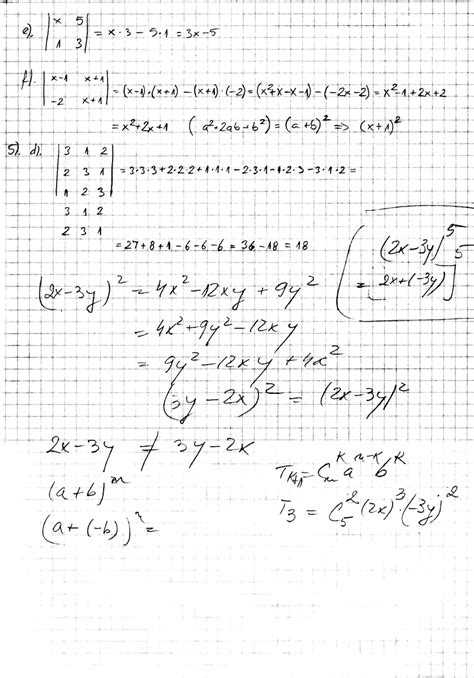 e). | x 5 |
| 1 3 | = x·3 - 5·1 = 3x-5
f). | x-1 x+1 |
| -2 x+1 | = (x-1)·(x+1) - (x+1)·(-2) = (x²+x-x-1) - (-2x-2) = x²-1+2x+2
= x²+2x+1 (a²+2ab+b²) = (a+b)² => (x+1)²
5). d). | 3 1 2 |
| 2 3 1 | = 3·3·3+2·2·2+1·1·1-2·3·1-1·2·3-3·1·2=
| 1 2 3 |
3 1 2
2 3 1 = 27+8+1-6-6-6 = 36-18 = 18
(2x-3y)⁵
= [2x+(-3y)]⁵
(2x-3y)² = 4x²-12xy+9y²
= 4x²+9y²-12xy
= 9y²-12xy+4x²
(3y-2x)² = (2x-3y)²
2x-3y ≠ 3y-2x
(a+b)ⁿ
(a+(-b))ⁿ=
Tₖ₊₁=Cₙᵏaⁿ⁻ᵏbᵏ
T₃ = C₅²(2x)³·(-3y)²